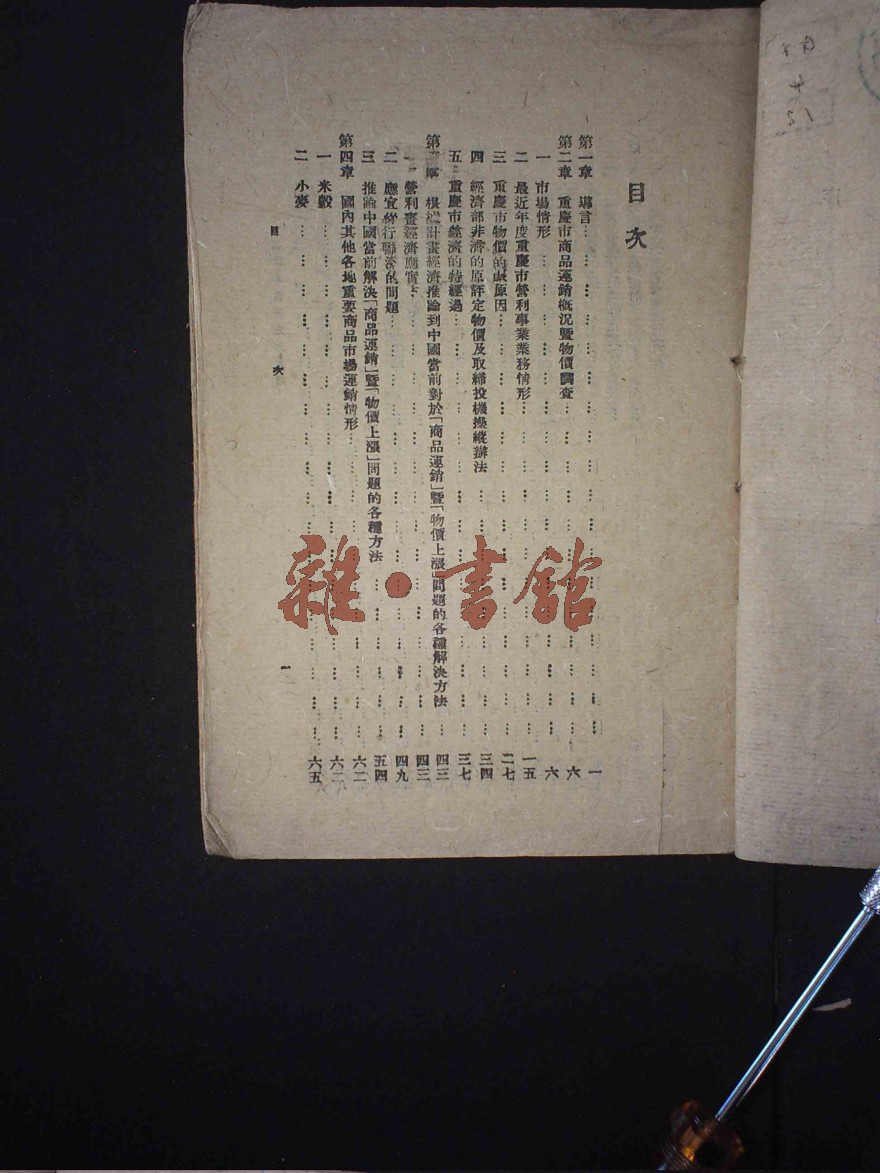 目次
第一章 導言 一
第二章 重慶市商品運銷概況暨物價調查 六
一 市場情形 六
二 最近年度重慶市營利事業業務情形 一五
三 重慶市物價的 原因 二七
四 經濟部非 的 評定物價及取締投機操縱辦法 三四
五 重慶市 的 經過 三七
第 章 根據計畫經濟推論到中國當前對於「商品運銷」暨「物價上漲」問題的各種解決方法 四三
一 營利 經濟應 四三
二 應宜 行聯 的問題 四九
三 推論中國當前解決「商品運銷」暨「物價上漲」問題的各種方法 五四
第四章 國內其他各地重要商品市場運銷情形 六二
一 米穀 六二
二 小麥 六五
目次 一
雜·書館